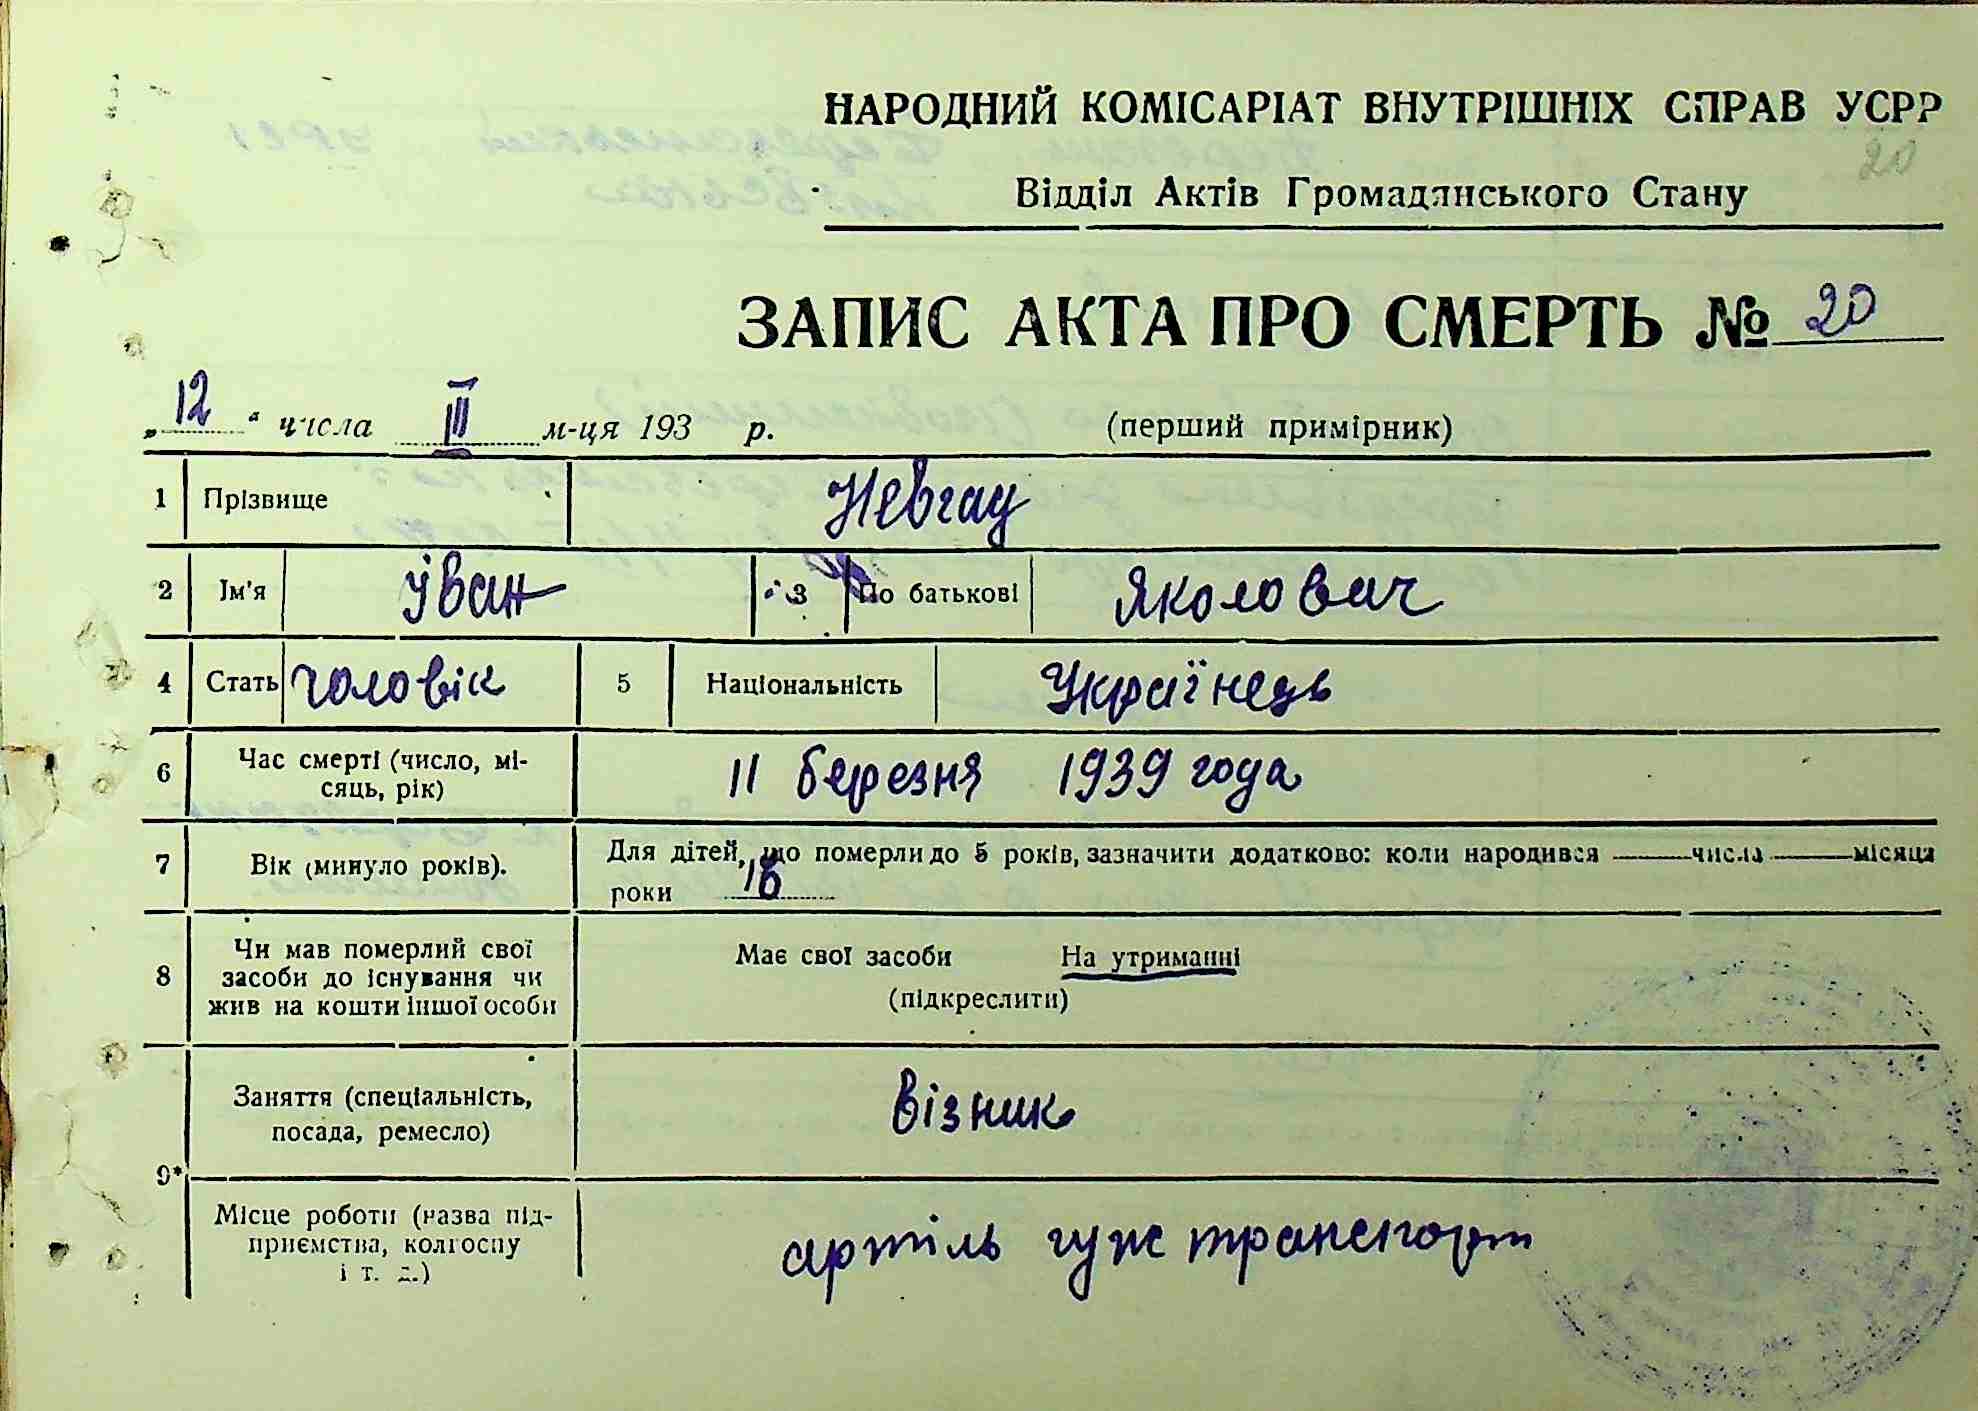 НАРОДНИЙ КОМІСАРІАТ ВНУТРІШНІХ СПРАВ УСРР
20
Відділ Актів Громадянського Стану
ЗАПИС АКТА ПРО СМЕРТЬ № 20
„12“ числа III м-ця 193 р. (перший примірник)
1 Прізвище Невгад
2 Ім'я Іван 3 По батькові Яколович
4 Стать чоловік 5 Національність Українець
6 Час смерті (число, мі-
сяць, рік) 11 березня 1939 года
7 Вік (минуло років). Для дітей, що померли до 5 років, зазначити додатково: коли народився ——числа——місяця
роки 16
8 Чи мав померлий свої
засоби до існування чи
жив на кошти іншої особи
Має свої засоби На утриманні
(підкреслити)
9* Заняття (спеціальність,
посада, ремесло) візник
Місце роботи (назва під-
приємства, колгоспу
і т. д.) артіль гуж транспорт